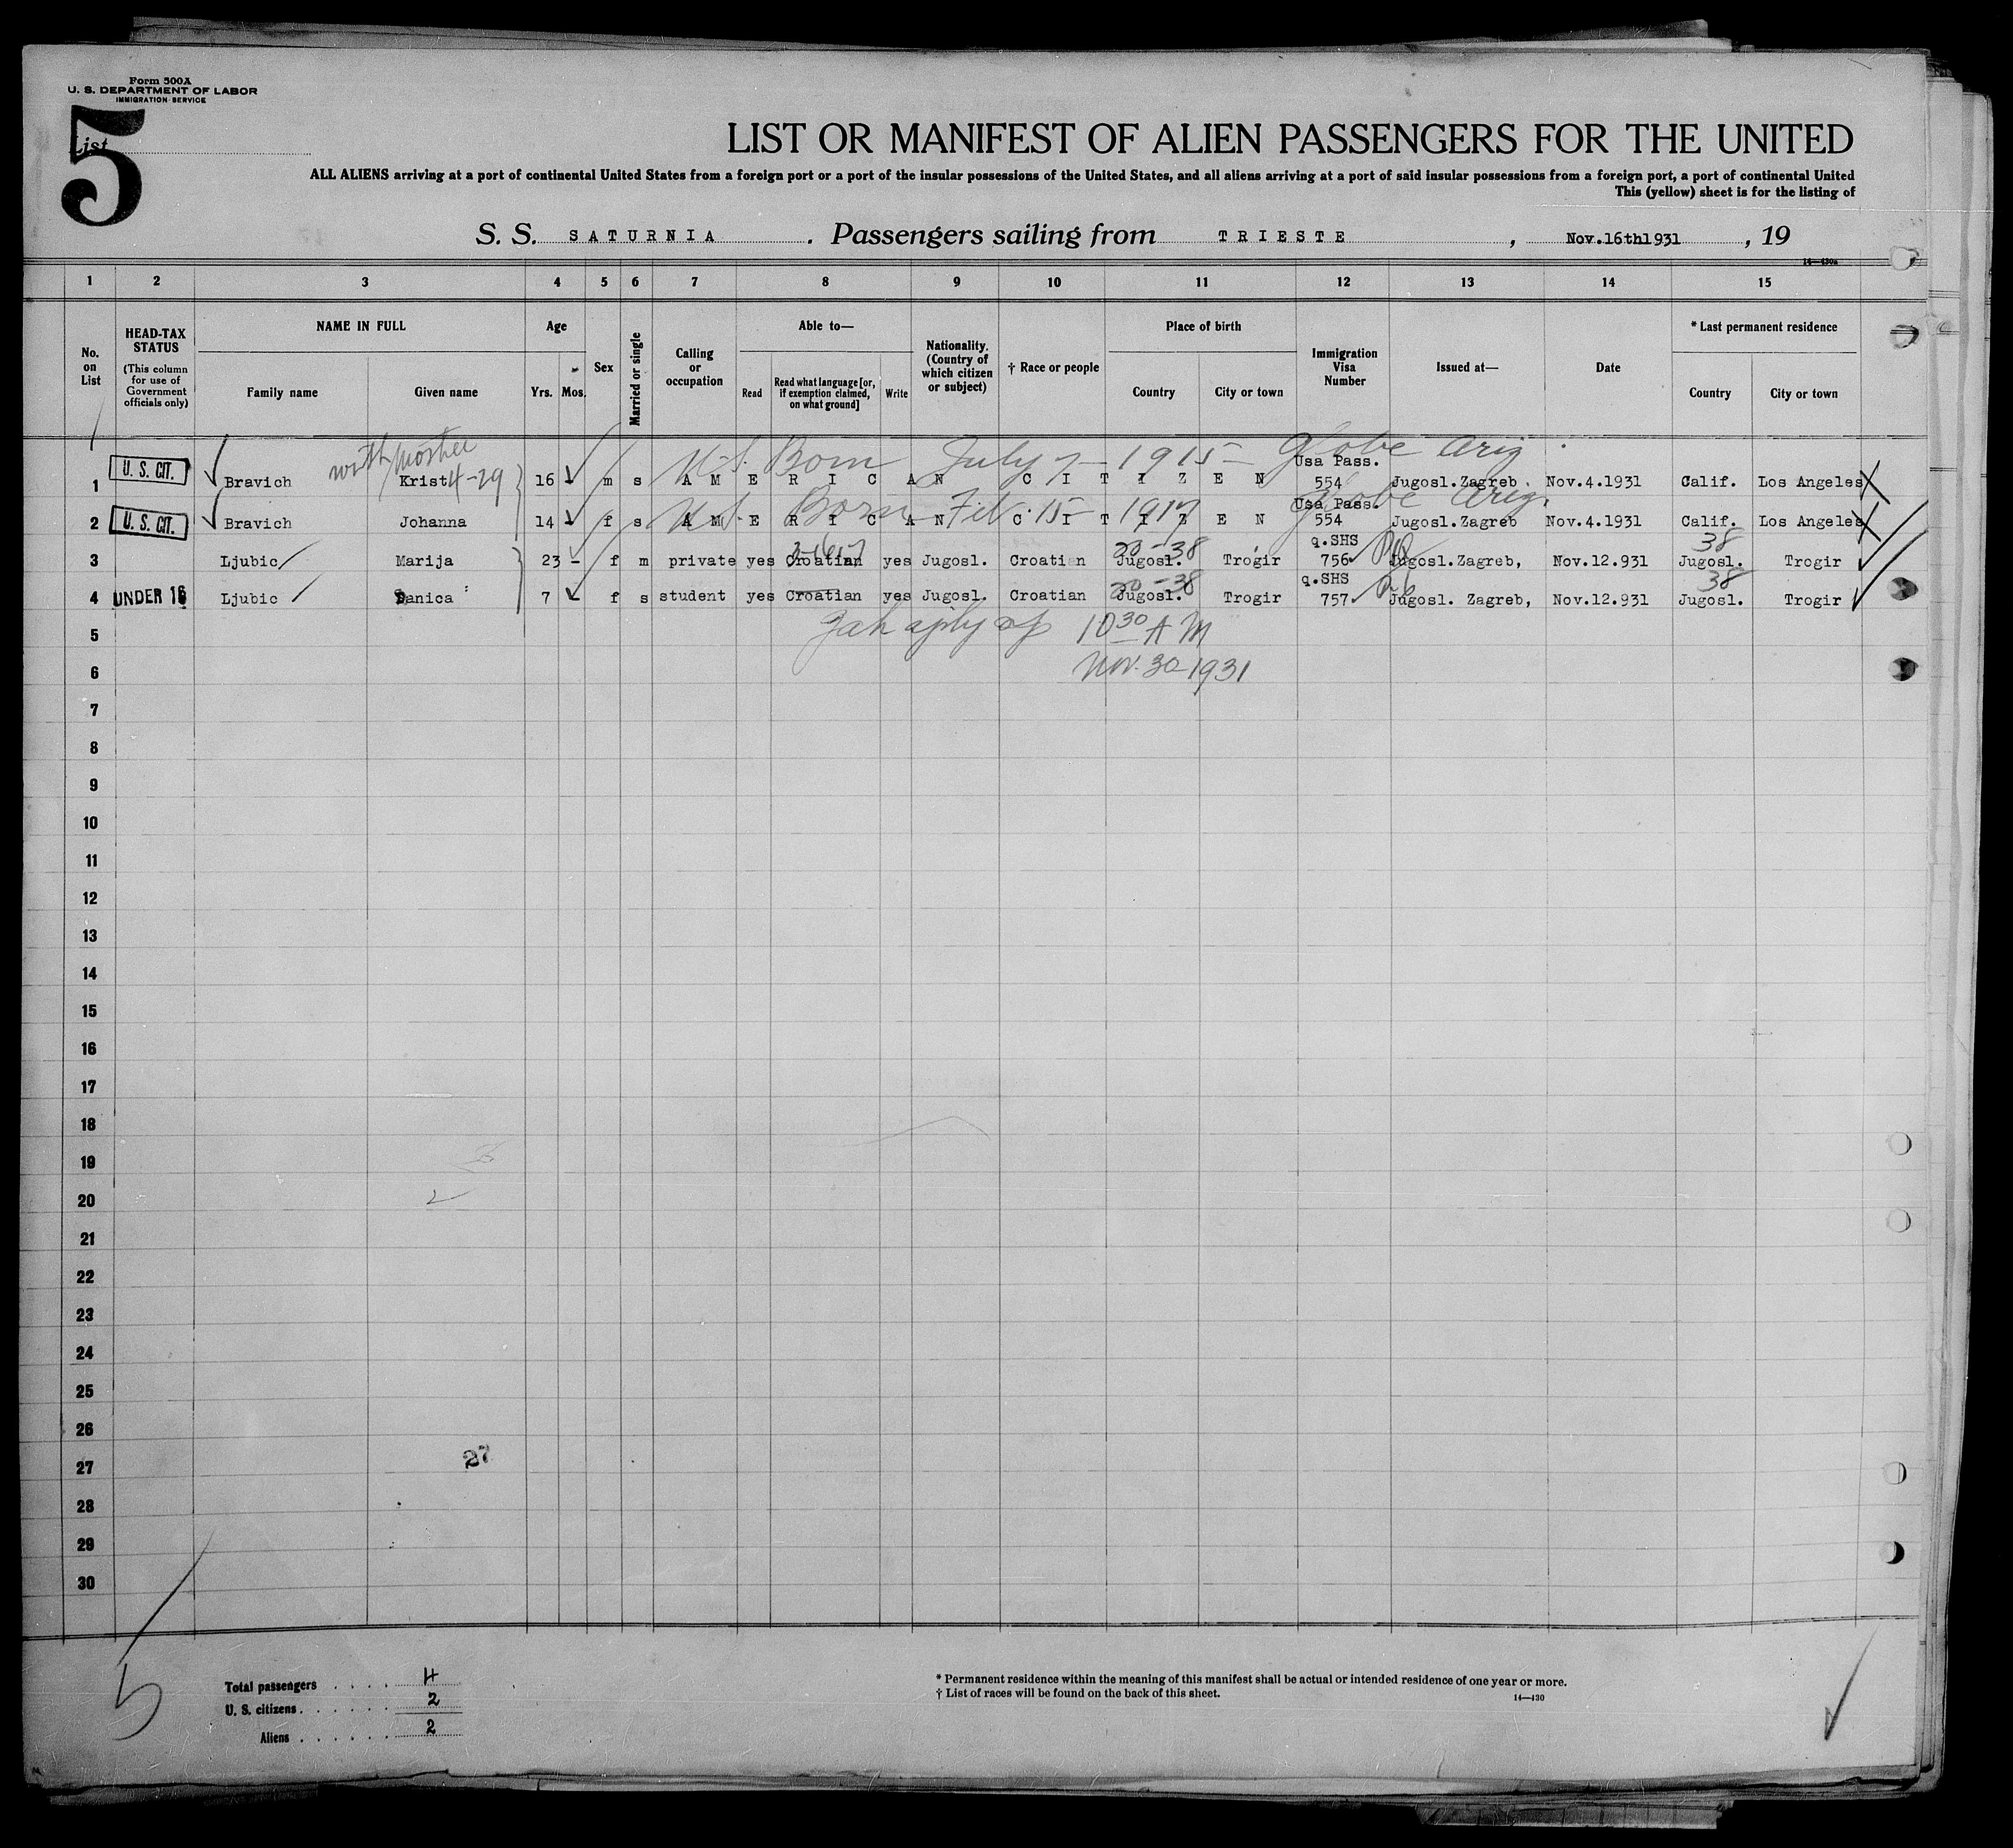 Form 500A
U. S. DEPARTMENT OF LABOR
IMMIGRATION SERVICE
List
5
LIST OR MANIFEST OF ALIEN PASSENGERS FOR THE UNITED
ALL ALIENS arriving at a port of continental United States from a foreign port or a port of the insular possessions of the United States, and all aliens arriving at a port of said insular possessions from a foreign port, a port of continental United
This (yellow) sheet is for the listing of
S. S. SATURNIA . Passengers sailing from TRIESTE , Nov.16th1931 , 19
14—430a
1 2 3 4 5 6 7 8 9 10 11 12 13 14 15
No. on List
HEAD-TAX STATUS (This column for use of Government officials only)
NAME IN FULL Family name Given name
Age Yrs. Mos.
Sex
Married or single
Calling or occupation
Able to— Read Read what language [or, if exemption claimed, on what ground] Write
Nationality. (Country of which citizen or subject)
† Race or people
Place of birth Country City or town
Immigration Visa Number
Issued at—
Date
* Last permanent residence Country City or town
with mother 4-29
U.S. Born July 7-1915- Globe Ariz
1 U. S. CIT. Bravich Krist 16 m s AMERICAN CITIZEN Usa Pass. 554 Jugosl.Zagreb Nov.4.1931 Calif. Los Angeles
U.S. Born Feb. 15-1917 Globe Ariz.
2 U. S. CIT. Bravich Johanna 14 f s AMERICAN CITIZEN Usa Pass. 554 Jugosl.Zagreb Nov.4.1931 Calif. Los Angeles
38
3 Ljubic Marija 23 - f m private yes Croatian yes Jugosl. Croatian Jugosl. Trogir q.SHS 756 Jugosl.Zagreb, Nov.12.931 Jugosl. Trogir
38
4 UNDER 16 Ljubic Danica 7 f s student yes Croatian yes Jugosl. Croatian Jugosl. Trogir q.SHS 757 Jugosl. Zagreb, Nov.12.931 Jugosl. Trogir
5 10 30 A M
6 Nov. 30-1931
7
8
9
10
11
12
13
14
15
16
17
18
19
20
21
22
23
24
25
26
27 27
28
29
30
5
Total passengers . . . . 4
U. S. citizens . . . . . . 2
Aliens . . . . . . 2
* Permanent residence within the meaning of this manifest shall be actual or intended residence of one year or more.
† List of races will be found on the back of this sheet.
14—430